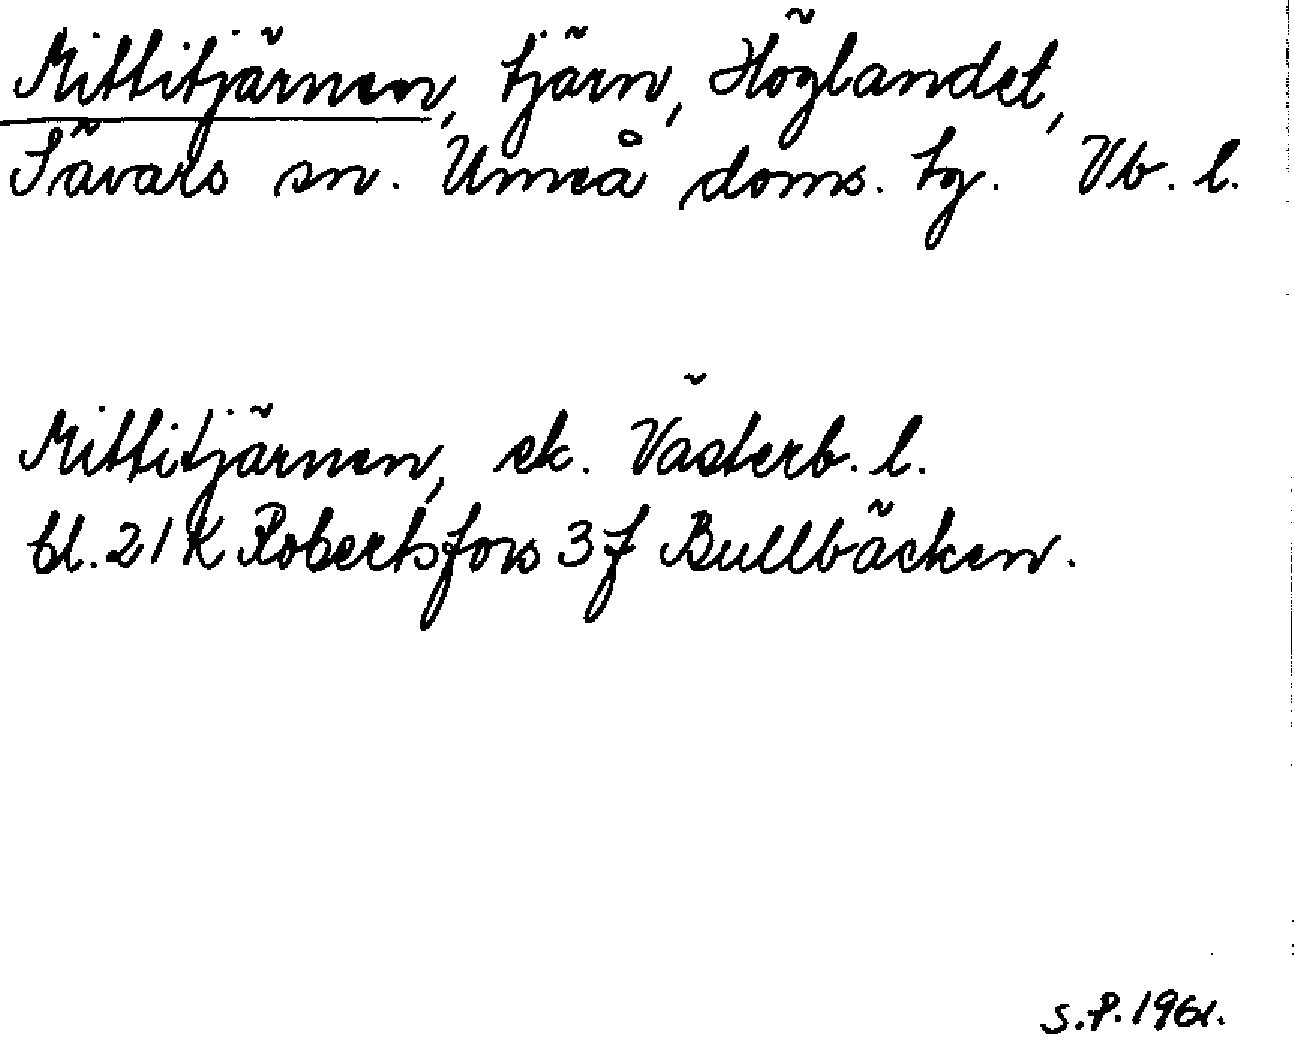 Mittitjärnen, tjärn, Höglandet,
Sävars sn. Umeå doms. tg. Vb. l.
Mittitjärnen, ek. Västerb. l.
bl. 21 K Robertsfors 3 f Bullbäcken.
S.P. 1961.